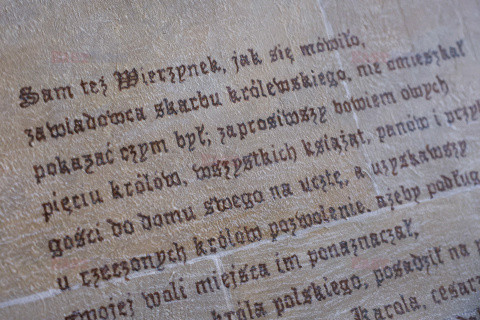 Sam też Wierzynek, jak się mówiło,
zawiadowca skarbu królewskiego, nie omieszkał
pokazać czym był; zaprosiwszy bowiem owych
pięciu królów, wszystkich książąt, panów i
gości do domu swego na ucztę, a uzyskawszy
u rzeczonych królów pozwolenie, ażeby podług
swojej woli miejsca im ponaznaczał,
króla polskiego, posadził na
Karola,